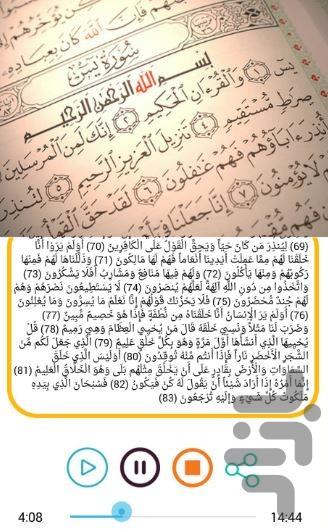 سُورَةُ يسٓ
بِسْمِ اللَّهِ الرَّحْمَٰنِ الرَّحِيمِ
يسٓ ١ وَالْقُرْءَانِ الْحَكِيمِ ٢ إِنَّكَ لَمِنَ الْمُرْسَلِينَ
صِرَاطٍ مُسْتَقِيمٍ ٤ تَنزِيلَ الْعَزِيزِ الرَّحِيمِ ٥ لِتُنذِرَ
أُنذِرَ ءَابَاؤُهُمْ فَهُمْ غَافِلُونَ ٦ لَقَدْ حَقَّ الْقَوْلُ
لَا يُؤْمِنُونَ ٧ إِنَّا جَعَلْنَا فِي
(69) لِيُنذِرَ مَن كَانَ حَيّاً وَيَحِقَّ الْقَوْلُ عَلَى الْكَافِرِينَ (70) أَوَلَمْ يَرَوْا أَنَّا
خَلَقْنَا لَهُمْ مِمَّا عَمِلَتْ أَيْدِينَا أَنْعَاماً فَهُمْ لَهَا مَالِكُونَ (71) وَذَلَّلْنَاهَا لَهُمْ فَمِنْهَا
رَكُوبُهُمْ وَمِنْهَا يَأْكُلُونَ (72) وَلَهُمْ فِيهَا مَنَافِعُ وَمَشَارِبُ أَفَلَا يَشْكُرُونَ (73)
وَاتَّخَذُوا مِن دُونِ اللَّهِ آلِهَةً لَعَلَّهُمْ يُنصَرُونَ (74) لَا يَسْتَطِيعُونَ نَصْرَهُمْ وَهُمْ
لَهُمْ جُندٌ مُحْضَرُونَ (75) فَلَا يَحْزُنكَ قَوْلُهُمْ إِنَّا نَعْلَمُ مَا يُسِرُّونَ وَمَا يُعْلِنُونَ
(76) أَوَلَمْ يَرَ الْإِنسَانُ أَنَّا خَلَقْنَاهُ مِن نُطْفَةٍ فَإِذَا هُوَ خَصِيمٌ مُبِينٌ (77)
وَضَرَبَ لَنَا مَثَلاً وَنَسِيَ خَلْقَهُ قَالَ مَن يُحْيِي الْعِظَامَ وَهِيَ رَمِيمٌ (78) قُلْ
يُحْيِيهَا الَّذِي أَنشَأَهَا أَوَّلَ مَرَّةٍ وَهُوَ بِكُلِّ خَلْقٍ عَلِيمٌ (79) الَّذِي جَعَلَ لَكُم مِنَ
الشَّجَرِ الْأَخْضَرِ نَاراً فَإِذَا أَنتُم مِنْهُ تُوقِدُونَ (80) أَوَلَيْسَ الَّذِي خَلَقَ
السَّمَاوَاتِ وَالْأَرْضَ بِقَادِرٍ عَلَى أَن يَخْلُقَ مِثْلَهُم بَلَى وَهُوَ الْخَلَّاقُ الْعَلِيمُ (81)
إِنَّمَا أَمْرُهُ إِذَا أَرَادَ شَيْئاً أَنْ يَقُولَ لَهُ كُن فَيَكُونُ (82) فَسُبْحَانَ الَّذِي بِيَدِهِ
مَلَكُوتُ كُلِّ شَيْءٍ وَإِلَيْهِ تُرْجَعُونَ (83)
4:08 14:44